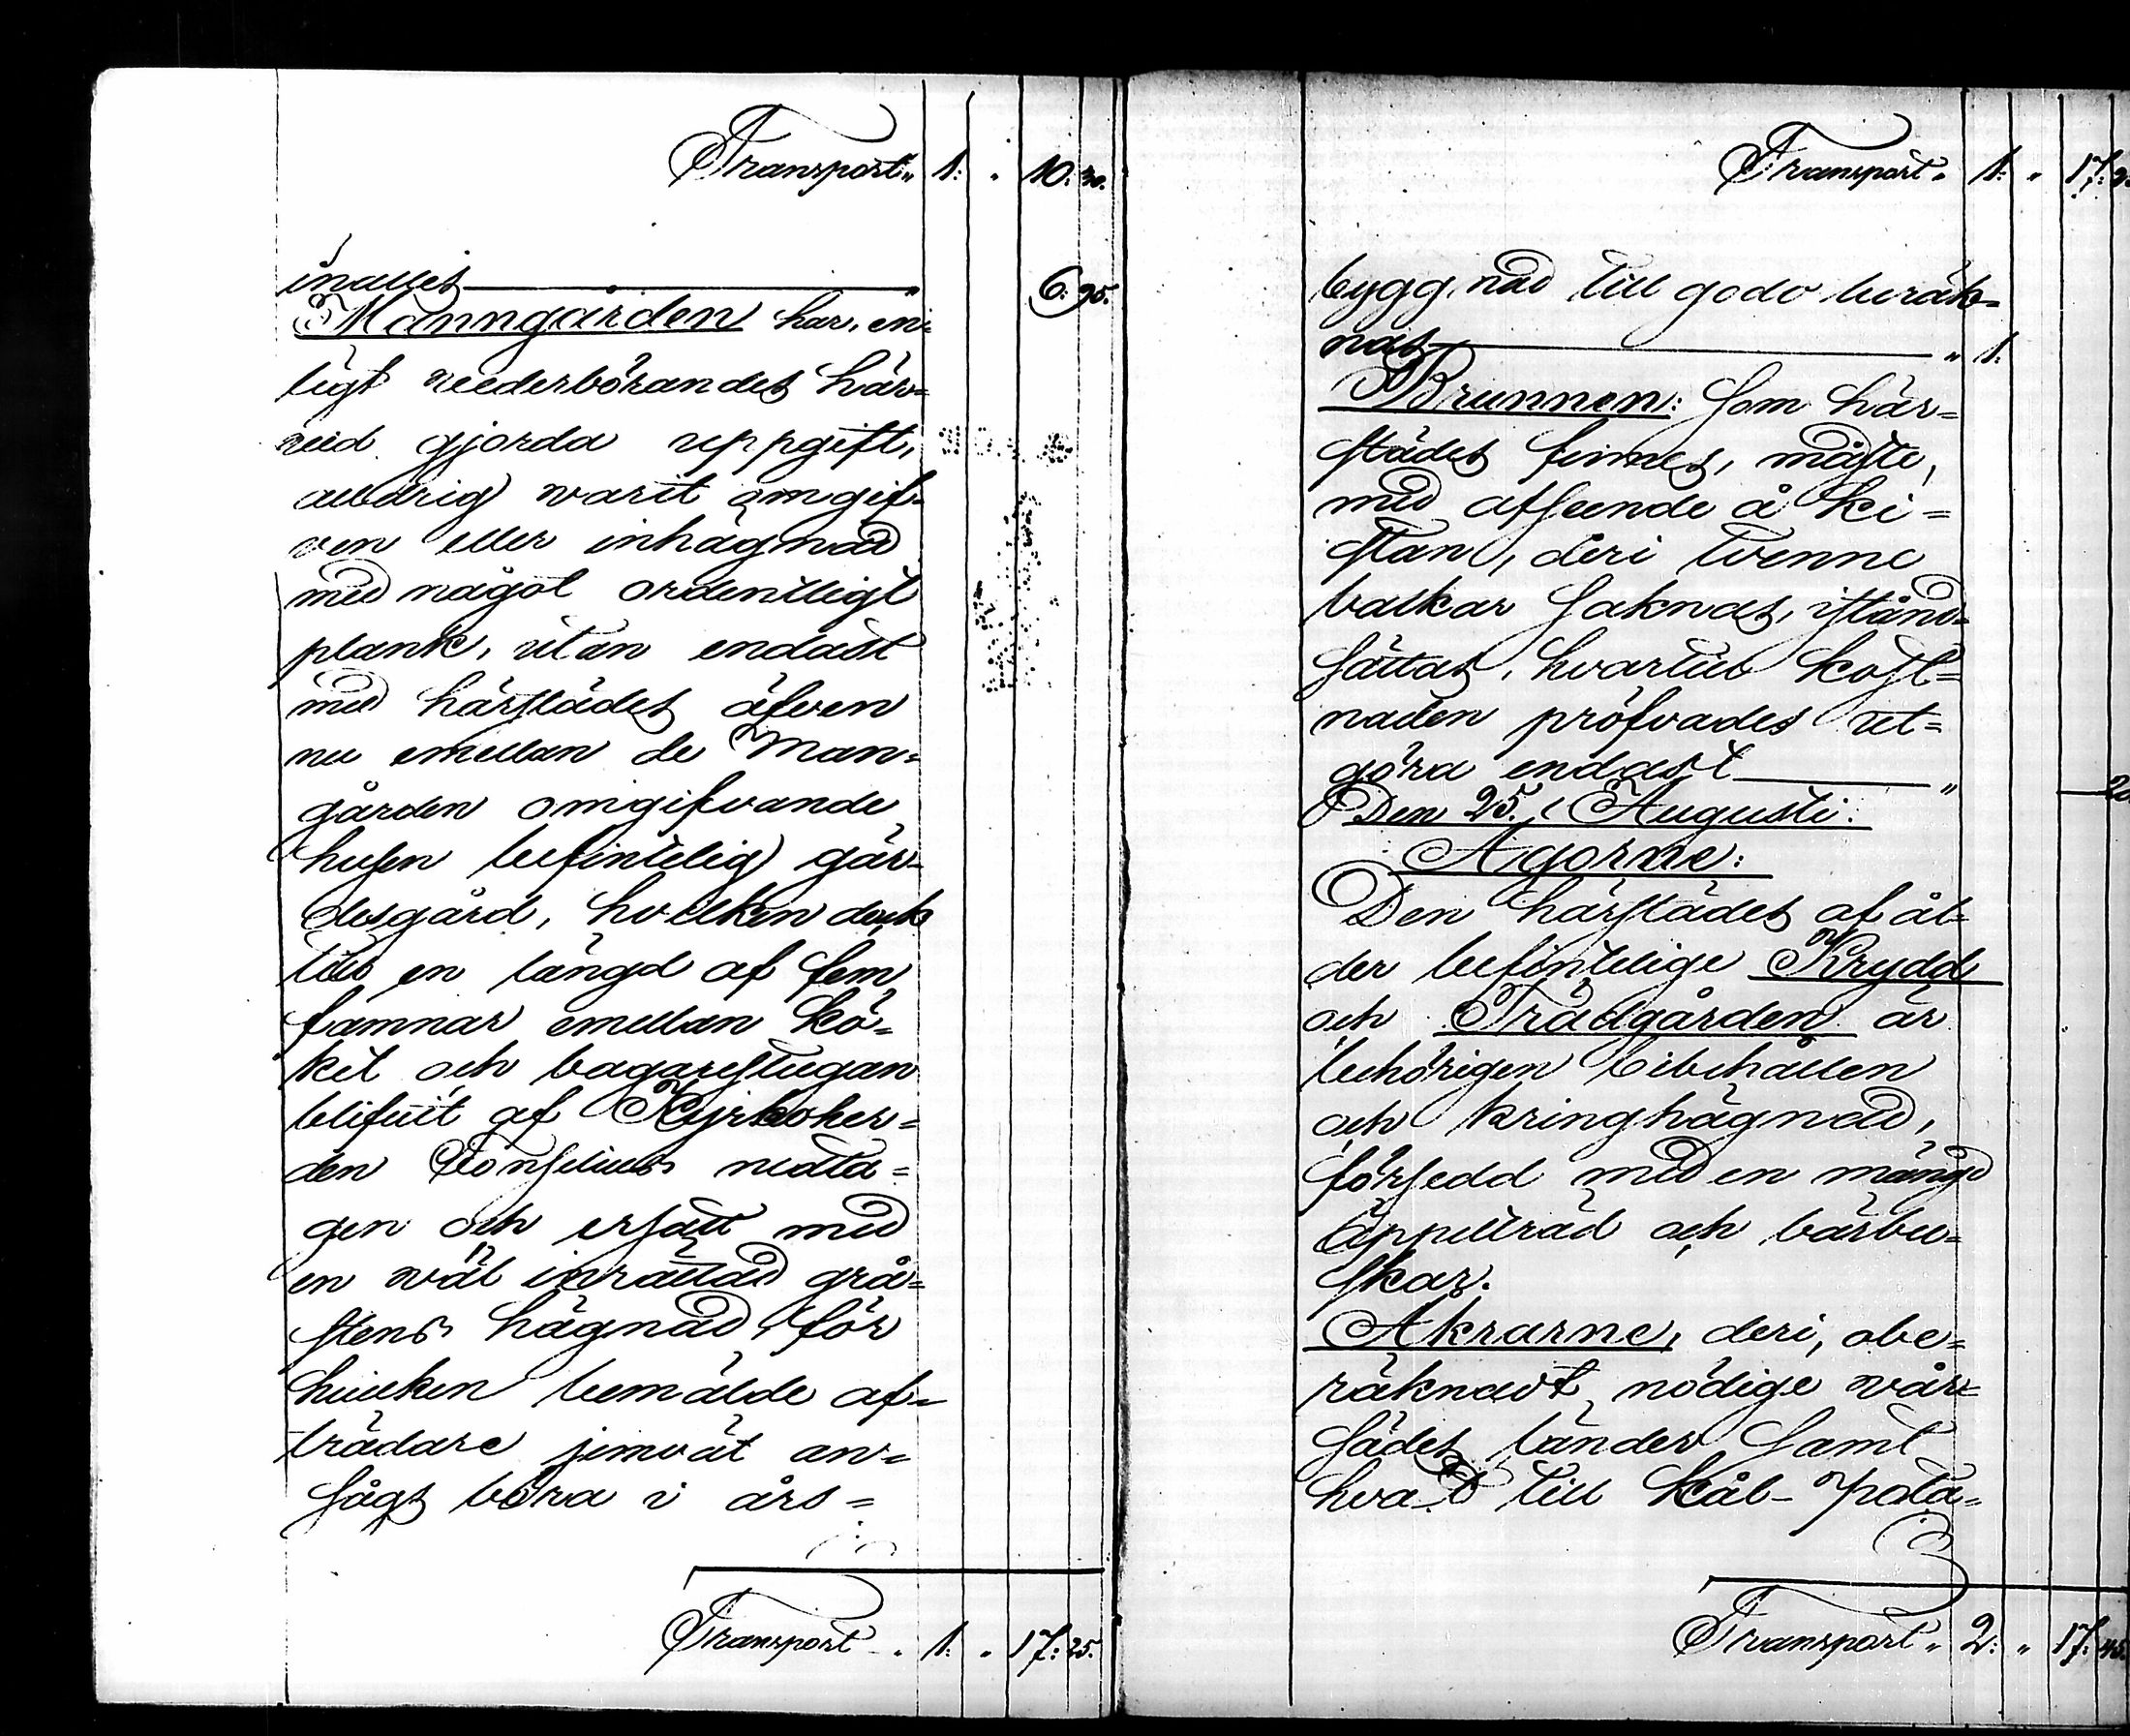 Transport „ 1: „ 10: 30.
inalles „ 6: 95.
Manngården har, en=
ligt vederbörandes här=
vid gjorda uppgift,
aldrig warit omgif=
ven eller inhägnad
med något ordentligt
plank, utan endast
med härstädes äfven
nu emellan de Man=
gården omgifvande
husen befintelig gär=
desgård, hvilken dock
till en längd af fem
famnar emellan Kö=
ket och bagarestugan
blifvit af Kyrkoher=
den Conselius nedta=
gen och ersatt med
en wäl inrättad grå=
stens hägnad, för
hvilken bemälde af=
trädare jemväl an=
sågs böra i års=
Transport „ 1: „ 17: 25.
Transport „ 1: „ 17: 2
byggnad till godo beräk=
nas „ 1:
Brunnen: Som här=
städes finnes, måste,
med afseende å ki=
stan, deri tvenne
balkar saknas, istånd=
sättas, hvartill kost=
naden pröfvades ut=
göra endast „ 20
Den 25. Augusti:
Ägorne:
Den härstädes af ål=
der befintelige Krydd
och Trädgården är
behörigen bibehållen
och kringhägnad,
försedd med en mängd
äppelträd och bärbu=
skar.
Åkrarne, deri, obe=
räknadt nödige vår=
sädes länder samt
hvad till kål- pota=
Transport „ 2: „ 17: 45.